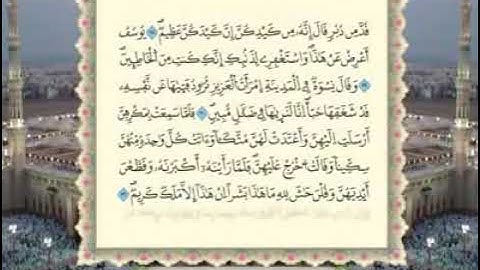 قُدَّ مِن دُبُرٍ قَالَ إِنَّهُ مِن كَيْدِكُنَّ إِنَّ كَيْدَكُنَّ عَظِيمٌ يُوسُفُ
أَعْرِضْ عَنْ هَٰذَا وَاسْتَغْفِرِي لِذَنبِكِ إِنَّكِ كُنتِ مِنَ الْخَاطِئِينَ
وَقَالَ نِسْوَةٌ فِي الْمَدِينَةِ امْرَأَتُ الْعَزِيزِ تُرَاوِدُ فَتَاهَا عَن نَّفْسِهِ
قَدْ شَغَفَهَا حُبًّا إِنَّا لَنَرَاهَا فِي ضَلَالٍ مُّبِينٍ فَلَمَّا سَمِعَتْ بِمَكْرِهِنَّ
أَرْسَلَتْ إِلَيْهِنَّ وَأَعْتَدَتْ لَهُنَّ مُتَّكَأً وَآتَتْ كُلَّ وَاحِدَةٍ مِّنْهُنَّ
سِكِّينًا وَقَالَتِ اخْرُجْ عَلَيْهِنَّ فَلَمَّا رَأَيْنَهُ أَكْبَرْنَهُ وَقَطَّعْنَ
أَيْدِيَهُنَّ وَقُلْنَ حَاشَ لِلَّهِ مَا هَٰذَا بَشَرًا إِنْ هَٰذَا إِلَّا مَلَكٌ كَرِيمٌ